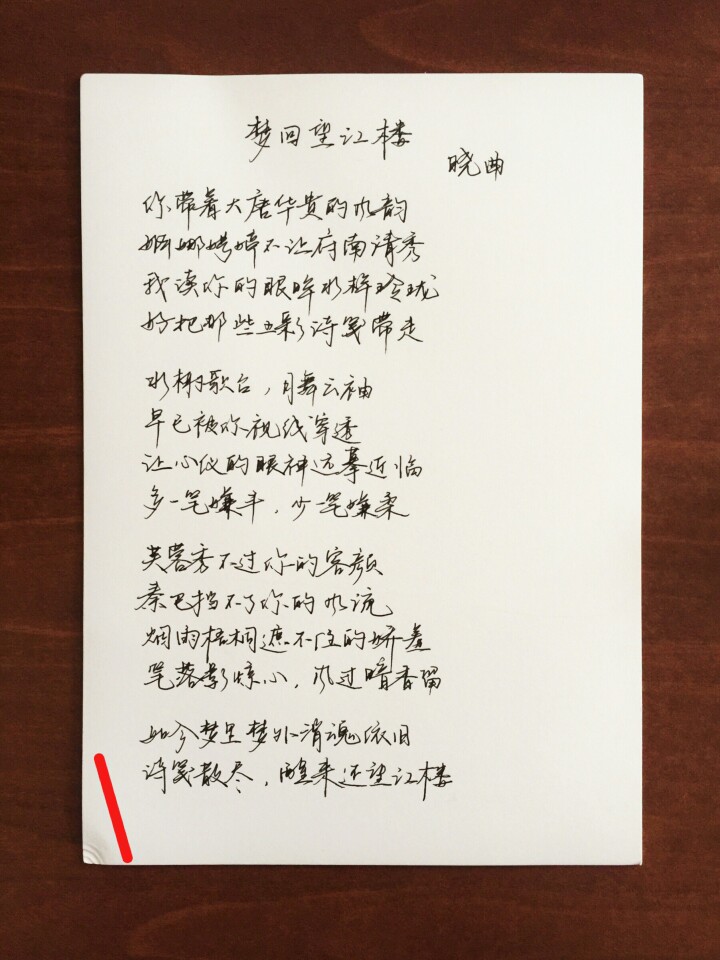 梦回望江楼
晓曲
你带着大唐华贵的水韵
婀娜娉婷不让府南清秀
我读你的眼眸水样玲珑
好把那些五彩诗笺带走
水榭歌台，月舞云袖
早已被你视线穿透
让心仪的眼神远摹近临
多一笔嫌丰，少一笔嫌柔
芙蓉秀不过你的容颜
秦巴挡不了你的水流
烟雨梧桐遮不住的娇羞
笔落影惊心，风过暗香留
如今梦里梦外消魂依旧
诗笺散尽，醒来还望江楼